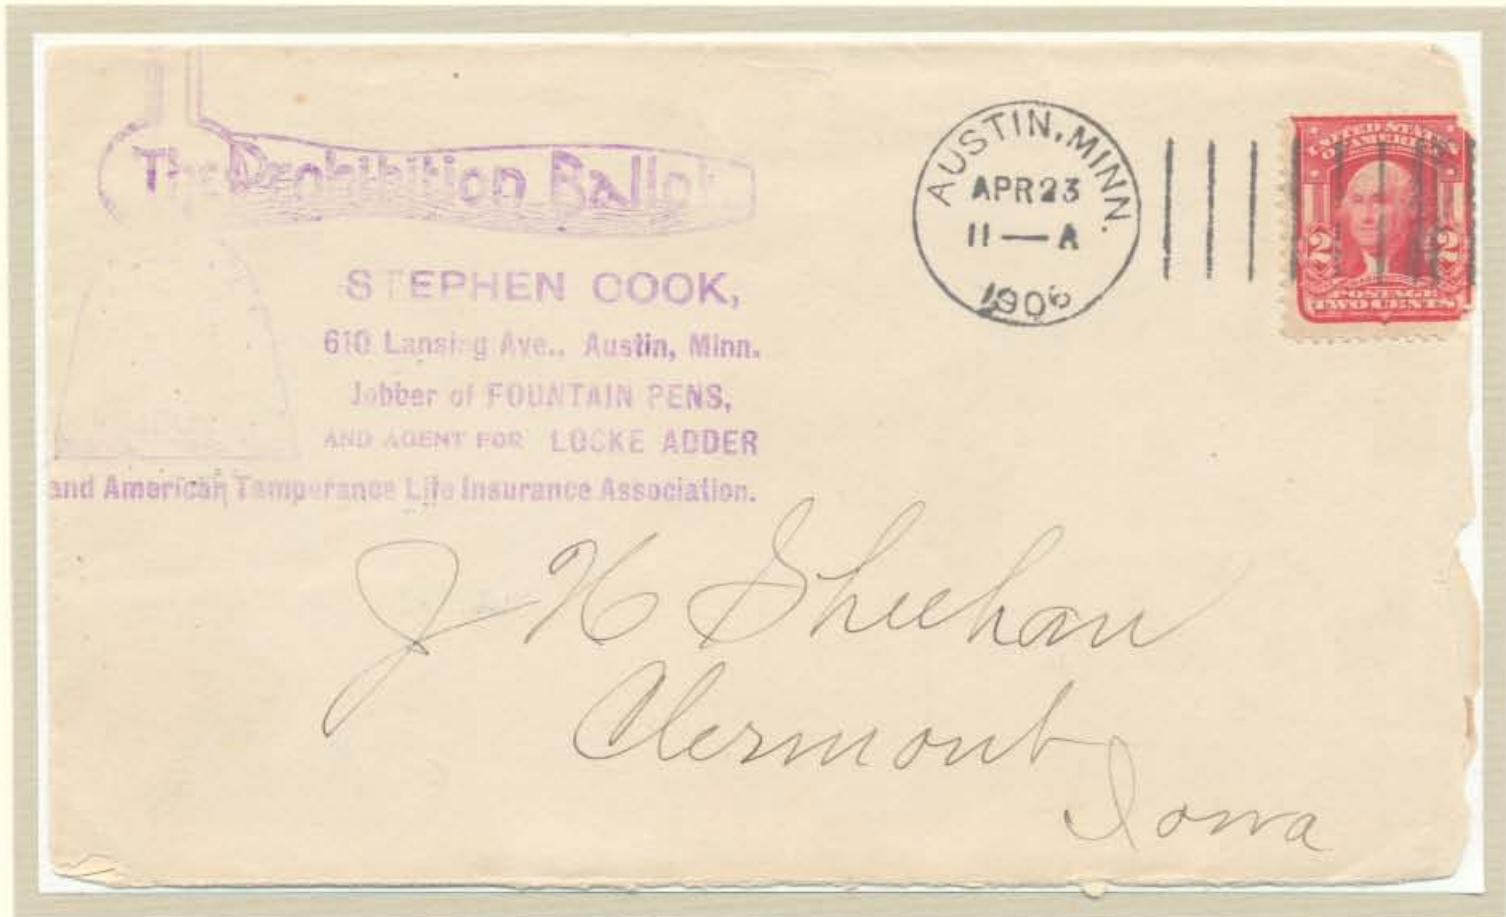 The Prohibition Ballot
STEPHEN COOK,
610 Lansing Ave., Austin, Minn.
Jobber of FOUNTAIN PENS,
AND AGENT FOR LOCKE ADDER
and American Temperance Life Insurance Association.
AUSTIN, MINN.
APR 23
11 — A
1906
UNITED STATES
OF AMERICA
2 2
POSTAGE
TWO CENTS
J H Sheehan
Clermont
Iowa